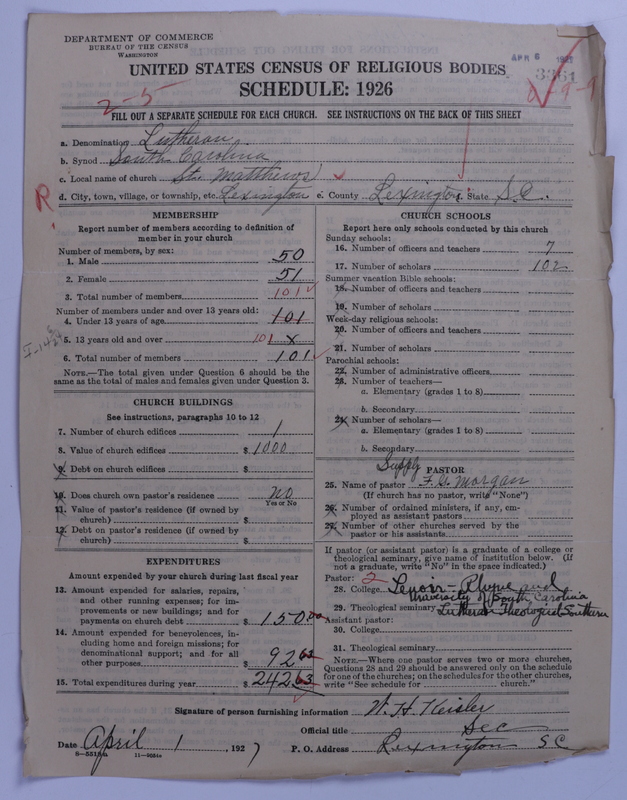 DEPARTMENT OF COMMERCE
BUREAU OF THE CENSUS
WASHINGTON
APR 6
3361
UNITED STATES CENSUS OF RELIGIOUS BODIES
SCHEDULE: 1926
2-5
FILL OUT A SEPARATE SCHEDULE FOR EACH CHURCH. SEE INSTRUCTIONS ON THE BACK OF THIS SHEET
a. Denomination Lutheran
b. Synod South Carolina
c. Local name of church St. Matthews
d. City, town, village, or township, etc. Lexington e. County Lexington f. State S.C.
R
MEMBERSHIP
Report number of members according to definition of
member in your church
Number of members, by sex:
1. Male 50
2. Female 51
3. Total number of members 101
Number of members under and over 13 years old:
4. Under 13 years of age 101
5. 13 years old and over 101 x
6. Total number of members 101
NOTE.—The total given under Question 6 should be the
same as the total of males and females given under Question 3.
CHURCH BUILDINGS
See instructions, paragraphs 10 to 12
7. Number of church edifices 1
8. Value of church edifices $ 1000
9. Debt on church edifices $
10. Does church own pastor's residence No
Yes or No
11. Value of pastor's residence (if owned by
church) $
12. Debt on pastor's residence (if owned by
church) $
EXPENDITURES
Amount expended by your church during last fiscal year
13. Amount expended for salaries, repairs,
and other running expenses; for im-
provements or new buildings; and for
payments on church debt $ 150.00
14. Amount expended for benevolences, in-
cluding home and foreign missions; for
denominational support; and for all
other purposes $ 92 63
15. Total expenditures during year $ 242 63
CHURCH SCHOOLS
Report here only schools conducted by this church
Sunday schools:
16. Number of officers and teachers 7
17. Number of scholars 102
Summer vacation Bible schools:
18. Number of officers and teachers
19. Number of scholars
Week-day religious schools:
20. Number of officers and teachers
21. Number of scholars
Parochial schools:
22. Number of administrative officers
23. Number of teachers—
a. Elementary (grades 1 to 8)
b. Secondary
24. Number of scholars—
a. Elementary (grades 1 to 8)
b. Secondary
Supply PASTOR
25. Name of pastor F. G. Morgan
(If church has no pastor, write "None")
26. Number of ordained ministers, if any, em-
ployed as assistant pastors
27. Number of other churches served by the
pastor or his assistants
If pastor (or assistant pastor) is a graduate of a college or
theological seminary, give name of institution below. (If
not a graduate, write "No" in the space indicated.)
Pastor: 2
28. College Lenoir-Rhyne and
University of South Carolina
29. Theological seminary Lutheran Theological Southern
Assistant pastor:
30. College
31. Theological seminary
NOTE.—Where one pastor serves two or more churches,
Questions 28 and 29 should be answered only on the schedule
for one of the churches; on the schedules for the other churches,
write "See schedule for church."
Signature of person furnishing information W. H. Keisler
Official title Sec
Date April 1, 1927 P. O. Address Lexington S C